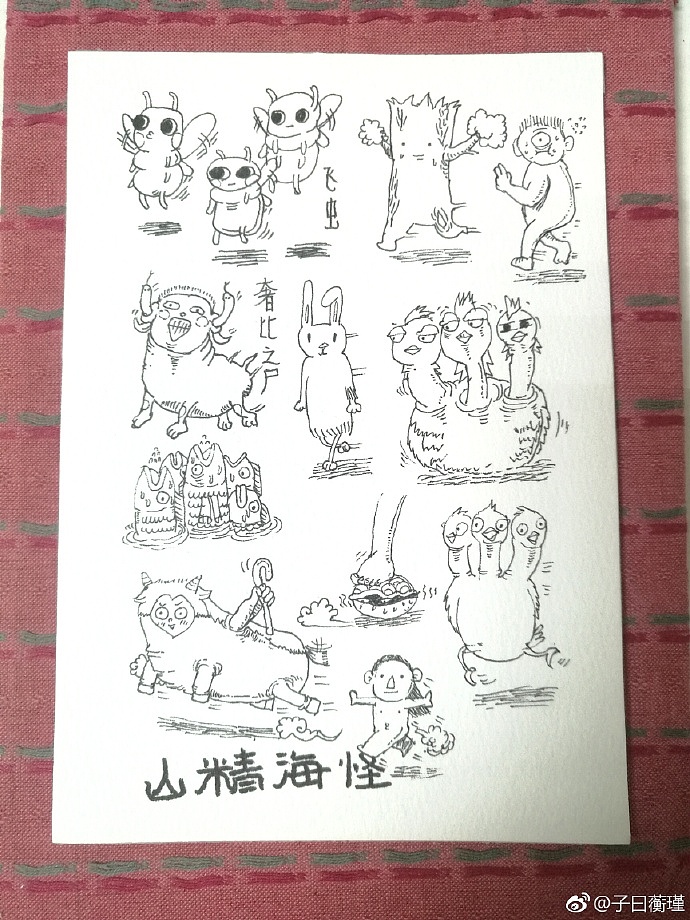 飞虫
奢比之尸
山精海怪
@子曰蘅瑾